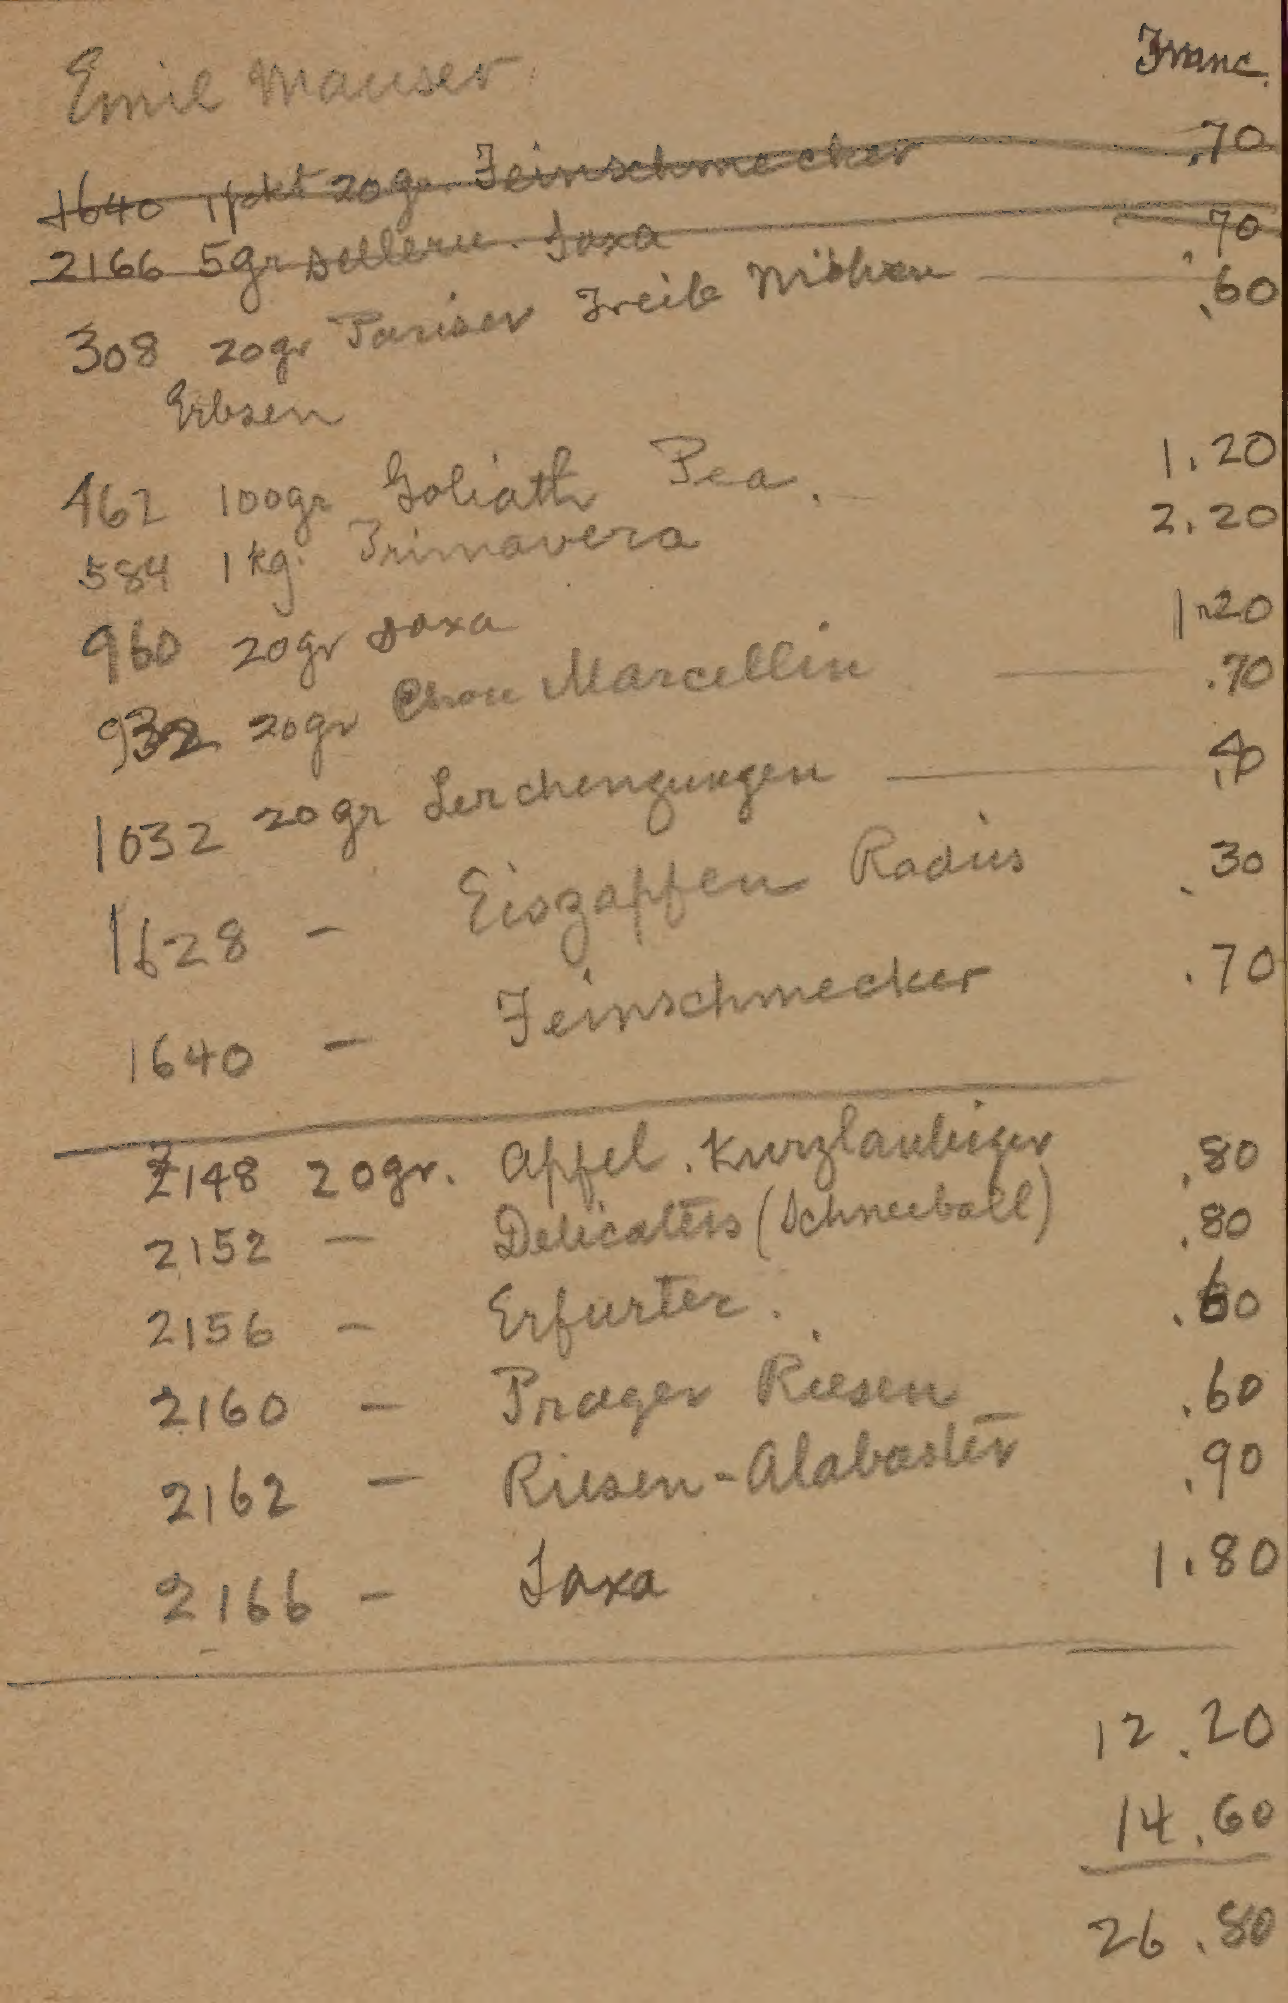 Emil Mauser Franc.
1640 1 pkt 20gr. Feinschmecker .70
2166 5gr Sellerie. Saxa .70
308 20gr Pariser Treib Möhren .60
Erbsen
462 100gr Goliath Pea. 1.20
584 1 kg. Primavera 2.20
960 20gr Saxa 1.20
932 20gr Chou Marcellin .70
1032 20gr Lerchenzungen .40
1628 - Eiszapfen Radies .30
1640 - Feinschmecker .70
2148 20gr. Apfel. Kurzlaubiger .80
2152 - Delicatess (Schneeball) .80
2156 - Erfurter. .60
2160 - Prager Riesen .60
2162 - Riesen-Alabaster .90
2166 - Saxa 1.80
12.20
14.60
26.80